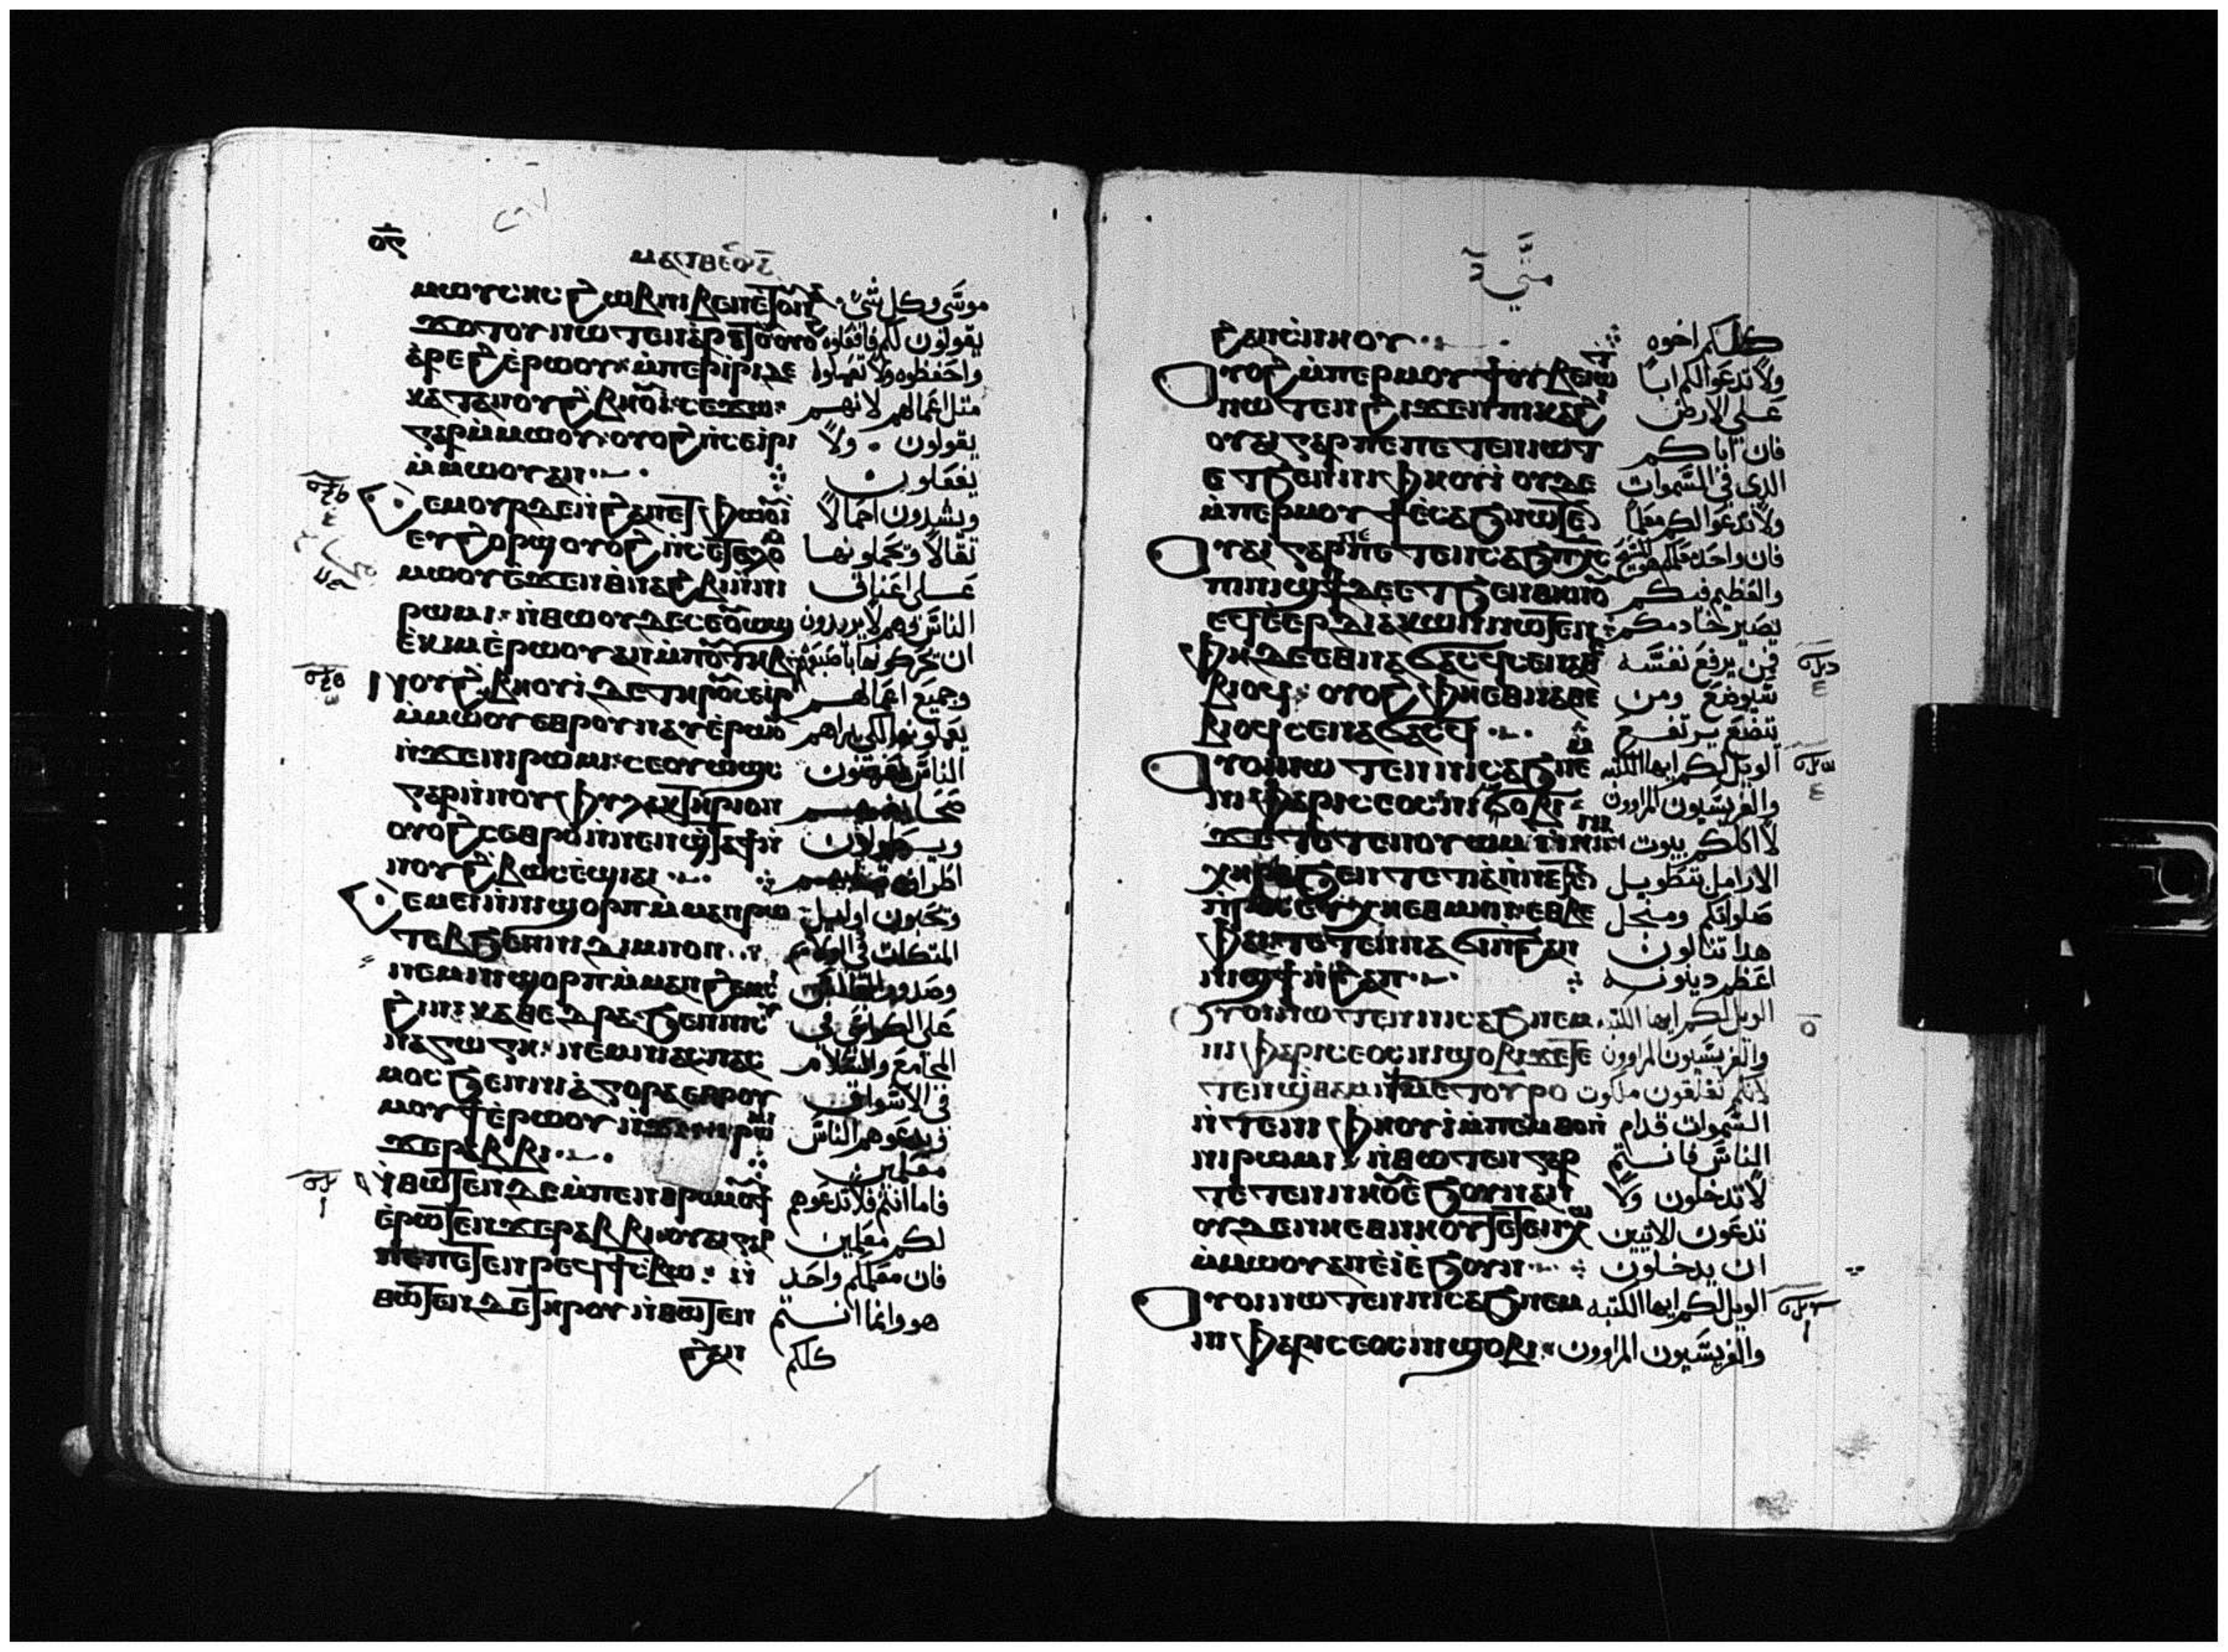 ⲙⲁⲧⲑⲉⲟⲥ
ⲙⲱⲩⲥⲏⲥ ϩⲱⲃ ⲛⲓⲃⲉⲛ ⲉⲧⲟⲩⲛⲁ موسى وكل شى
ϫⲟⲧⲟⲩ ⲛⲱⲧⲉⲛ يقولون لكم فافعلوه
ⲁⲣⲉϩ ⲉⲣⲱⲟⲩ ⲙⲡⲉⲣⲓⲣⲓ ⲇⲉ واحفظوه ولا تعملوا
ⲕⲁⲧⲁ ⲛⲟⲩϩⲃⲏⲟⲩⲓ ⲥⲉϫⲱ مثل اعمالهم لانهم
ⲅⲁⲣ ⲙⲙⲱⲟⲩ ⲟⲩⲟϩ ⲛⲥⲉⲓⲣⲓ يقولون ولا
ⲙⲙⲱⲟⲩ ⲁⲛ يفعلون
ⲥⲉⲙⲟⲩⲣ ⲇⲉ ⲛϩⲁⲛⲉⲧⲫⲱⲟⲩⲓ ويشدون احمالا
ⲉⲩϩⲟⲣϣ ⲟⲩⲟϩ ⲛⲥⲉⲧⲁⲗⲟ ثقالا ويحملونها
ⲙⲱⲟⲩ ⲉϫⲉⲛ ⲑⲛⲁϩⲃⲓ ⲛⲛⲓ على اعناق
ⲣⲱⲙⲓ ⲛⲑⲱⲟⲩ ⲇⲉ ⲥⲉⲟⲩⲱϣ الناس وهم لا يريدون
ⲉⲕⲓⲙ ⲉⲣⲱⲟⲩ ⲁⲛ ⲙⲡⲟⲩⲧⲏⲃ ان يحركونها باصبوعهم
ⲛⲟⲩϩⲃⲏⲟⲩⲓ ⲇⲉ ⲧⲏⲣⲟⲩ ⲥⲉⲓⲣⲓ وجميع اعمالهم
ⲙⲙⲱⲟⲩ ⲉⲑⲣⲟⲩⲛⲁⲩ ⲉⲣⲱⲟⲩ يعملونها لكى يراهم
ⲛϫⲉ ⲛⲓⲣⲱⲙⲓ ⲥⲉⲟⲩⲱϣⲥ الناس
ⲅⲁⲣ ⲛⲛⲟⲩⲫⲩⲗⲁⲕⲧⲏⲣⲓⲟⲛ
ⲟⲩⲟϩ ⲥⲉⲑⲣⲟ ⲛⲛⲉⲛϣϯⲁϯ ⲛ
ⲛⲟⲩϩⲃⲱⲥ ⲉϣⲓⲁⲓ
ⲥⲉⲙⲉⲓ ⲛⲛⲓϣⲟⲣⲡ ⲙⲙⲁⲛⲣⲱ ويحبون اوايل
ⲧⲉⲃ ϧⲉⲛ ⲛⲓⲇⲓⲡⲛⲟⲛ المتكات فى الولايم
ⲛⲉⲙ ⲛⲓϣⲟⲣⲡ ⲙⲙⲁⲛϩⲉⲙⲥⲓ
ϩⲓ ⲛⲓⲕⲁⲑⲉⲇⲣⲁ ϧⲉⲛ ⲛⲓⲥⲩ على الكراسى فى
ⲛⲁⲅⲱⲅⲏ ⲛⲉⲙ ⲛⲓⲁⲥⲡⲁⲥ المجامع والسلام
ⲙⲟⲥ ϧⲉⲛ ⲛⲓⲁⲅⲟⲣⲁ ⲉⲑⲣⲟⲩ فى الاسواق
ⲙⲟⲩϯ ⲉⲣⲱⲟⲩ ⲛϫⲉ ⲛⲓⲣⲱⲙⲓ ويدعوهم الناس
ϫⲉ ⲣⲁⲃⲃⲓ معلمين
ⲛⲑⲱⲧⲉⲛ ⲇⲉ ⲙⲡⲉⲛⲑⲣⲟⲩⲙⲟⲩϯ فاما انتم فلا تدعوهم
ⲉⲣⲱⲧⲉⲛ ϫⲉ ⲣⲁⲃⲃⲓ ⲟⲩⲁⲓ ⲅⲁⲣ لكم معلمين
ⲡⲉ ⲡⲉⲧⲉⲛⲣⲉϥϯⲥⲃⲱ ⲛ فان معلمكم واحد
ⲑⲱⲧⲉⲛ ⲇⲉ ⲧⲏⲣⲟⲩ ⲛⲑⲱⲧⲉⲛ هو وانما انتم
ϩⲁⲛ كلكم
متى
ϩⲁⲛⲥⲛⲏⲟⲩ كلكم اخوه
ⲟⲩⲟϩ ⲙⲡⲉⲣⲙⲟⲩϯ ⲟⲩⲃⲉ ⲓⲱⲧ ولا تدعوا لكم ابا
ⲛⲱⲧⲉⲛ ϩⲓϫⲉⲛ ⲡⲓⲕⲁϩⲓ على الارض
ⲟⲩⲁⲓ ⲅⲁⲣ ⲡⲉ ⲡⲉⲧⲉⲛⲓⲱⲧ فان اباكم
ⲉⲧϧⲉⲛ ⲛⲓⲫⲏⲟⲩⲓ ⲟⲩⲇⲉ الذى فى السموات
ⲙⲡⲉⲣⲙⲟⲩϯ ⲉⲥⲁϧ ⲛⲱⲧⲉⲛ ولا تدعوا لكم معلما
ⲟⲩⲁⲓ ⲅⲁⲣ ⲡⲉ ⲡⲉⲧⲉⲛⲥⲁϧ ⲡⲭⲥ فان واحد معلمكم هو المسيح
ⲡⲓⲛⲓϣϯ ⲇⲉ ⲉⲧϧⲉⲛ ⲑⲏⲛⲟⲩ والعظيم فيكم
ⲉϥⲉⲉⲣⲇⲓⲁⲕⲱⲛ ⲛⲱⲧⲉⲛ يصير خادمكم
ⲫⲏ ⲇⲉ ⲉⲑⲛⲁϭⲁⲥϥ ⲥⲉⲛⲁⲑⲉ فمن يرفع نفسه
ⲃⲓⲟϥ ⲟⲩⲟϩ ⲫⲏ ⲉⲑⲛⲁⲑⲉ سيوضع ومن
ⲃⲓⲟϥ ⲥⲉⲛⲁϭⲁⲥϥ يتضع يرتفع
ⲟⲩⲟⲓ ⲛⲱⲧⲉⲛ ⲛⲓⲥⲁϧ ⲛⲉⲙ الويل لكم ايها الكتبه
ⲛⲓⲫⲁⲣⲓⲥⲉⲟⲥ ⲛⲓϣⲟⲃⲓ والفريسيون المراوون
ϫⲉ ⲧⲉⲧⲉⲛⲟⲩⲱⲙ ⲛⲛⲓⲏⲓ ⲛⲧⲉ ⲛⲓ لاكلكم بيوت
ⲭⲏⲣⲁ ϧⲉⲛ الارامل بتطويل
ⲡⲣⲟⲥⲉⲩⲭⲏ ⲉⲑⲃⲉ صلواتكم ومن اجل
ⲫⲁⲓ ⲧⲉⲧⲉⲛⲛⲁϭⲓ ⲛϩⲁⲛ هدا تنالون
ⲛⲓϣϯ ⲛϩⲁⲡ اعظم دينونه
ⲟⲩⲟⲓ ⲛⲱⲧⲉⲛ ⲛⲓⲥⲁϧ ⲛⲉⲙ الويل لكم ايها الكتبه
ⲛⲓⲫⲁⲣⲓⲥⲉⲟⲥ ⲛⲓϣⲟⲃⲓ ϫⲉ ⲧⲉ والفريسيون المراوون
ⲧⲉⲛϣⲑⲁⲙ ⲛϯⲙⲉⲧⲟⲩⲣⲟ لانكم تغلقون ملكوت
ⲛⲧⲉ ⲛⲓⲫⲏⲟⲩⲓ ⲙⲡⲉⲙⲑⲟ ⲛ السموات قدام
ⲛⲓⲣⲱⲙⲓ ⲛⲑⲱⲧⲉⲛ ⲅⲁⲣ الناس فانتم
ⲧⲉⲧⲉⲛⲛⲏⲟⲩ ⲉϧⲟⲩⲛ ⲁⲛ لا تدخلون ولا
ⲟⲩⲇⲉ ⲛⲏ ⲉⲑⲛⲏⲟⲩ ⲧⲉⲧⲉⲛⲭⲱ تدعون الاتيين
ⲙⲙⲱⲟⲩ ⲁⲛ ⲉⲓ ⲉϧⲟⲩⲛ ان يدخلون
ⲟⲩⲟⲓ ⲛⲱⲧⲉⲛ ⲛⲓⲥⲁϧ ⲛⲉⲙ الويل لكم ايها الكتبه
ⲛⲓⲫⲁⲣⲓⲥⲉⲟⲥ ⲛⲓϣⲟⲃⲓ والفريسيون المراوون